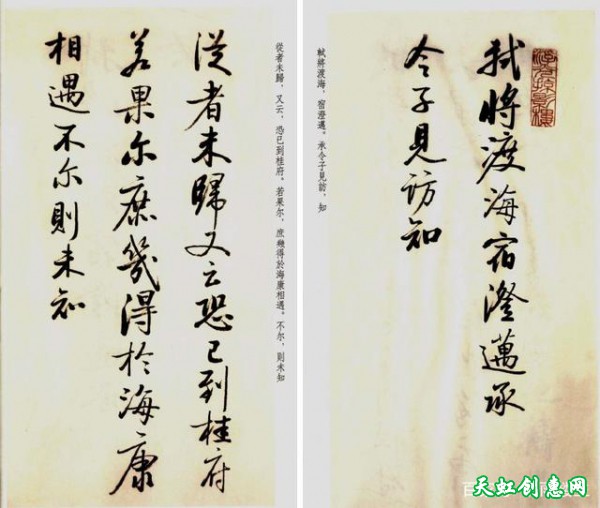 軾將渡海宿澄邁承
令子見訪知
軾將渡海,宿澄邁。承令子見訪,知
從者未歸又云恐已到桂府
若果尔庶幾得於海康
相遇不尔則未知
從者未歸,又云,恐已到桂府。若果尔,庶幾得於海康相遇。不尔,則未知
天虹创惠网